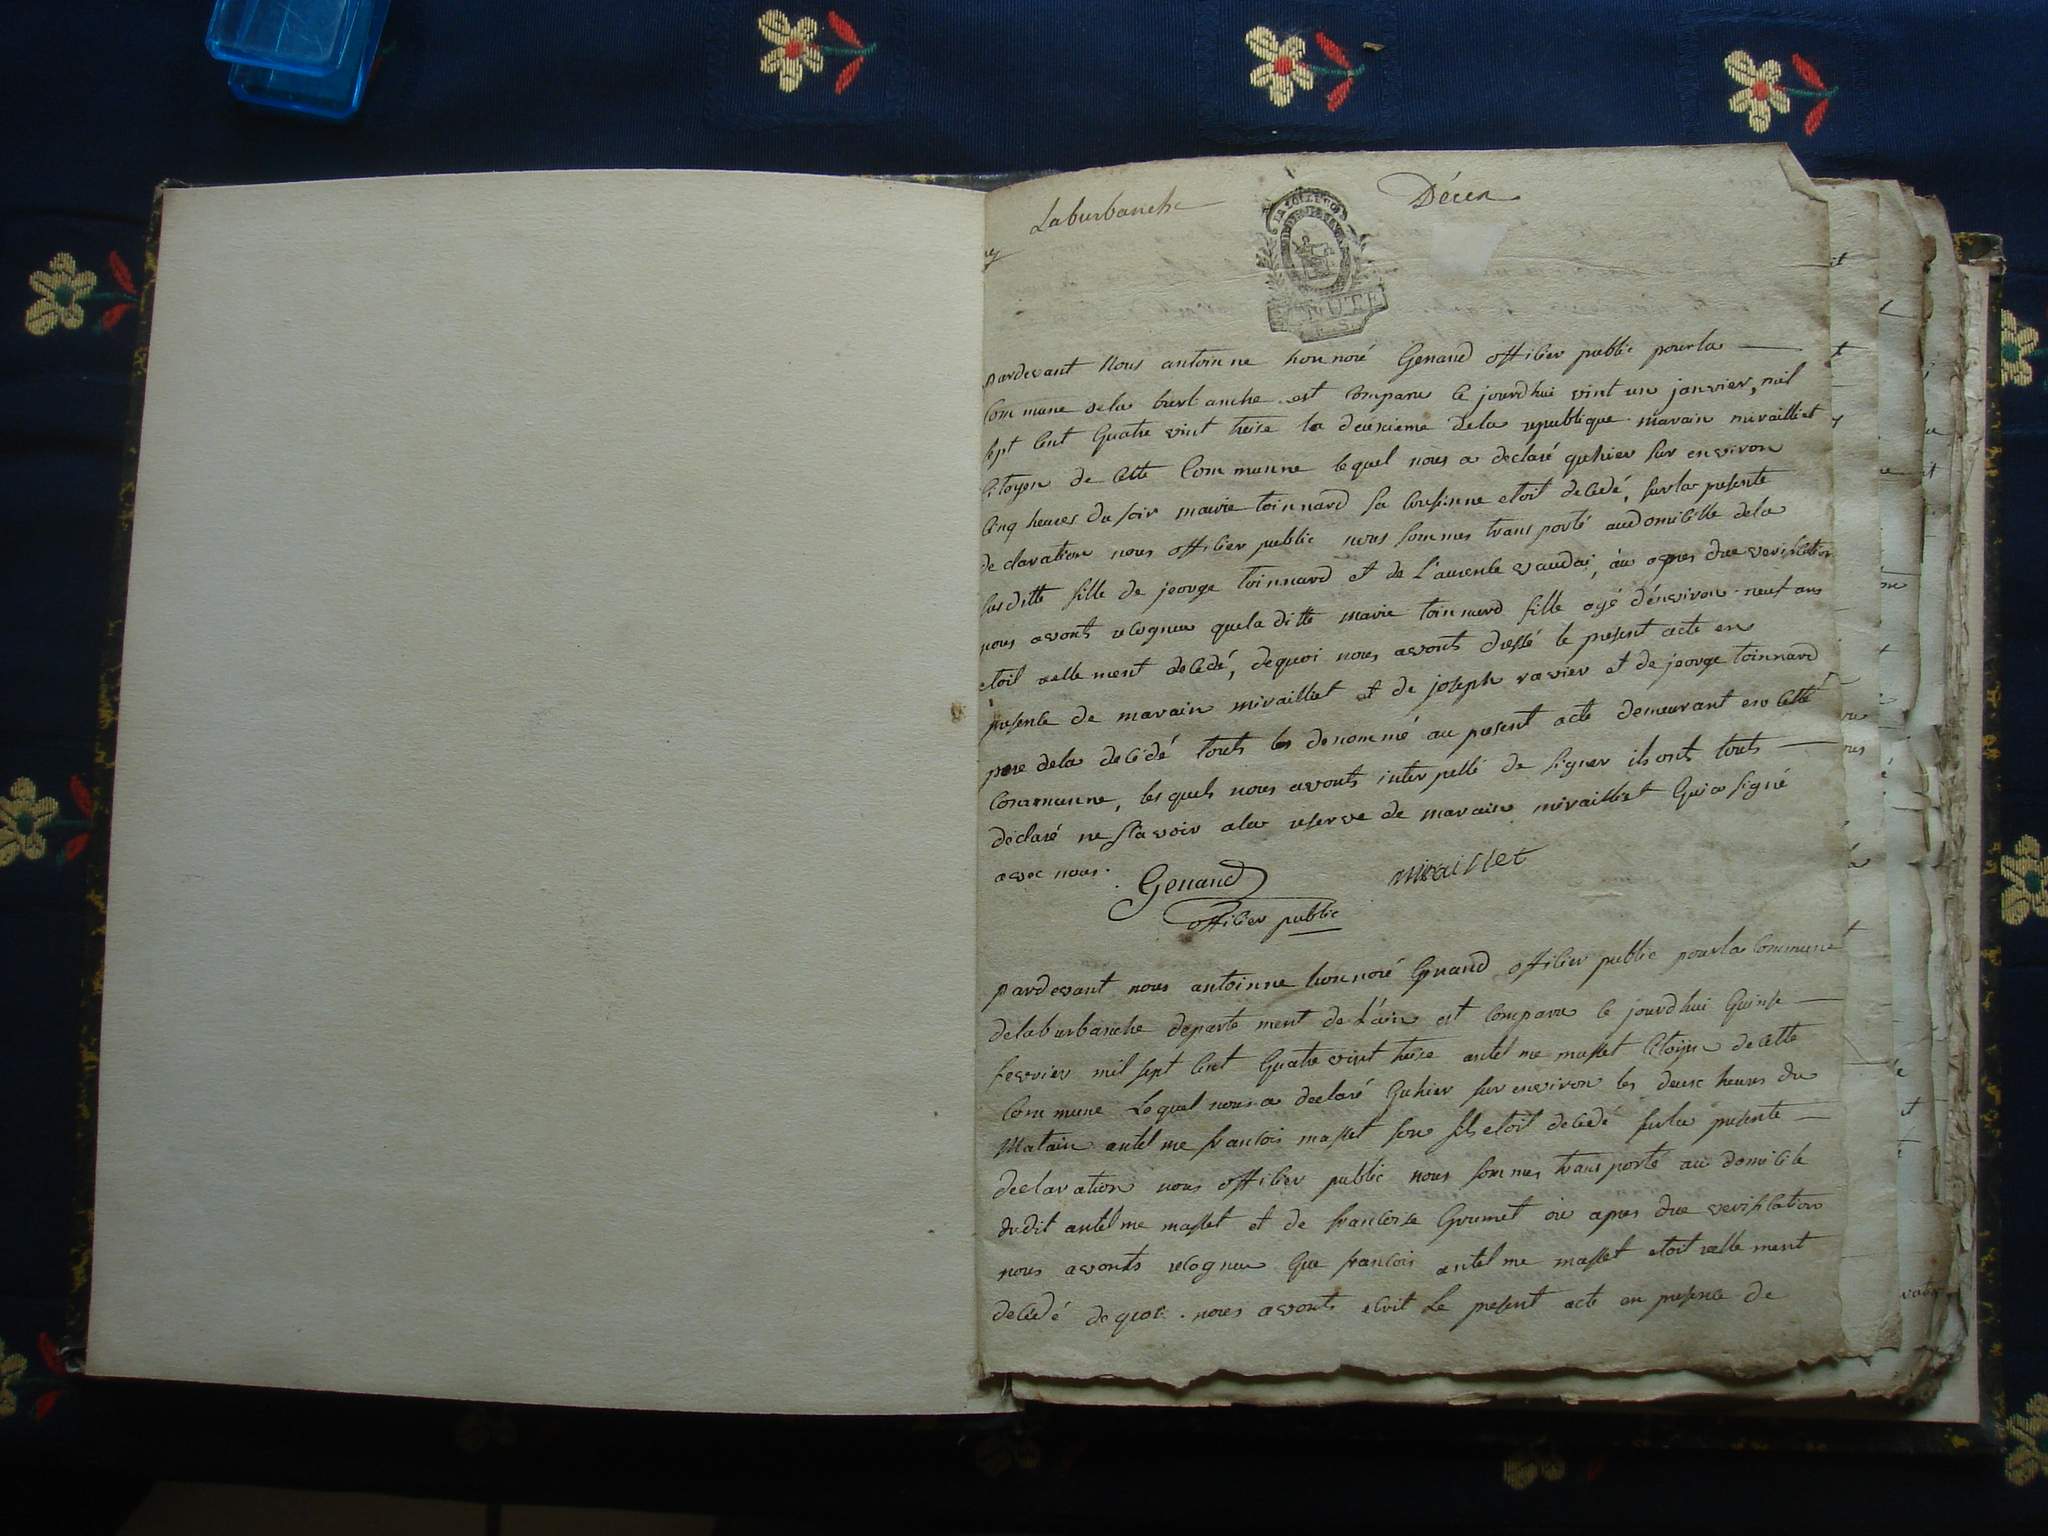 Laburbanche
Décès
LA LOI LE ROI
pardevant Nous antoinne honnoré Genaud offilier public pourla
Commune dela burbanche est Comparu Ce jourdhui vint un janvier, mil
sept Cent Quatre vint treise la deuxieme dela republique marain miraillet
Citoyen de Cette Commune lequel nous a declaré quhier sur environ
Cinq heures du soir marie toinnard sa Cousinne etoit decedé, surla presente
declaration nous offilier public nous sommes transporté audomicille dela
susditte fille de jeorge toinnard et de Laurence vaudai, ou apres due verification
nous avonts recogneu quela ditte marie toinnard fille agé d'environ neuf ans
etoit reellement decedé, dequoi nous avonts dressé le present acte en
presence de marain miraillet et de joseph ravier et de jeorge toinnard
pere dela decedé touts les denommé au present acte demeurant en Cette
Communne, lesquels nous avonts interpellé de signer ils ont touts
déclaré ne sçavoir ala reserve de marain miraillet Qui a signé
avec nous.
Genaud
miraillet
offilier public
pardevant nous antoinne honnoré Genaud offilier public pourla Commune
delaburbanche departement de L'ain est Comparu Ce jourdhui Quinse
fevrier mil sept Cent Quatre vint treise antelme masset Citoyen de Cette
Commune Lequel nous a declaré Quhier sur environ les deux heures du
Matain antelme francois masset son fils etoit decedé surla presente
declaration nous offilier public nous sommes transporté au domicile
dudit antelme masset et de francoise Grumet ou apres due verification
nous avonts recogneu Que francois antelme masset etoit reellement
decedé dequoi nous avonts ecrit Le present acte en presence de